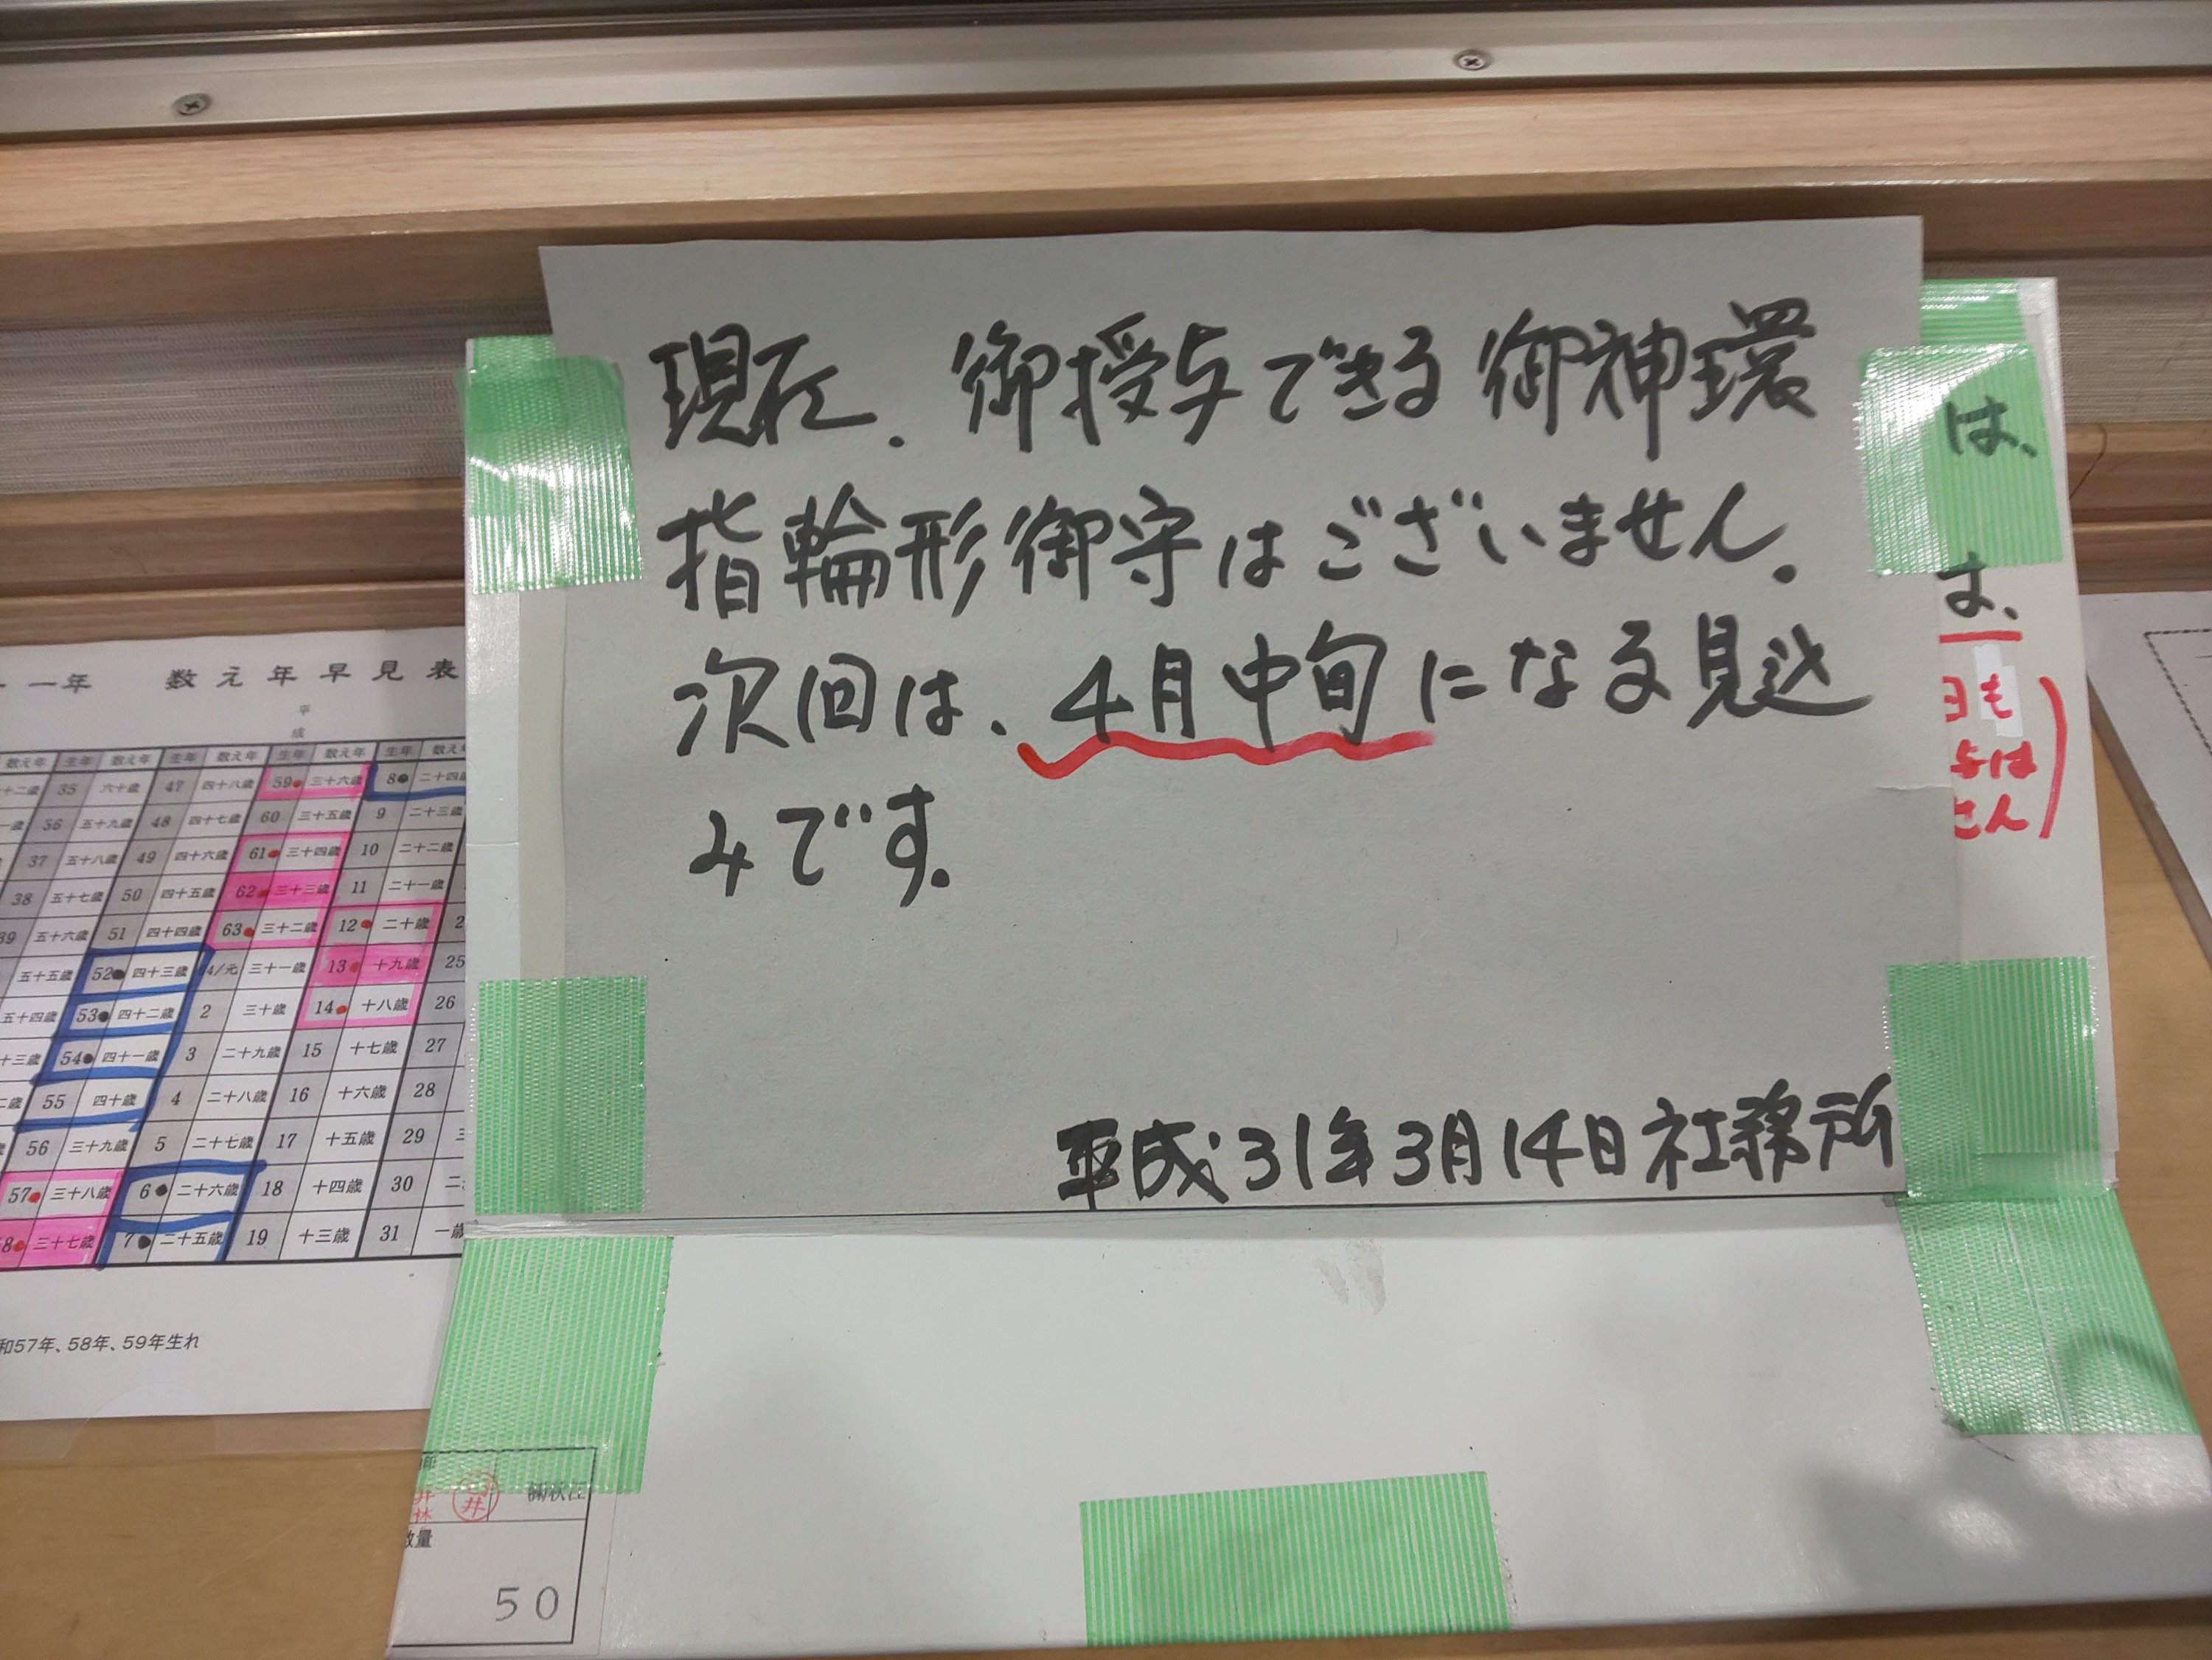 現在、御授与できる御神環
指輪形御守はございません。
次回は、4月中旬になる見込
みです。
平成31年3月14日社務所
は、
は、
日も
与は
せん)
一年 数え年早見表
平
成
数え年 生年 数え年 生年 数え年 生年 数え年 生年 数え年
十二歳 35 六十歳 47 四十八歳 59 三十六歳 8 二十四歳
一歳 36 五十九歳 48 四十七歳 60 三十五歳 9 二十三歳
37 五十八歳 49 四十六歳 61 三十四歳 10 二十二歳
38 五十七歳 50 四十五歳 62 三十三歳 11 二十一歳
39 五十六歳 51 四十四歳 63 三十二歳 12 二十歳 2
五十五歳 52 四十三歳 64/元 三十一歳 13 十九歳 25
五十四歳 53 四十二歳 2 三十歳 14 十八歳 26
十三歳 54 四十一歳 3 二十九歳 15 十七歳 27
二歳 55 四十歳 4 二十八歳 16 十六歳 28
56 三十九歳 5 二十七歳 17 十五歳 29
57 三十八歳 6 二十六歳 18 十四歳 30
8 三十七歳 7 二十五歳 19 十三歳 31 一歳
和57年、58年、59年生れ
数量
50